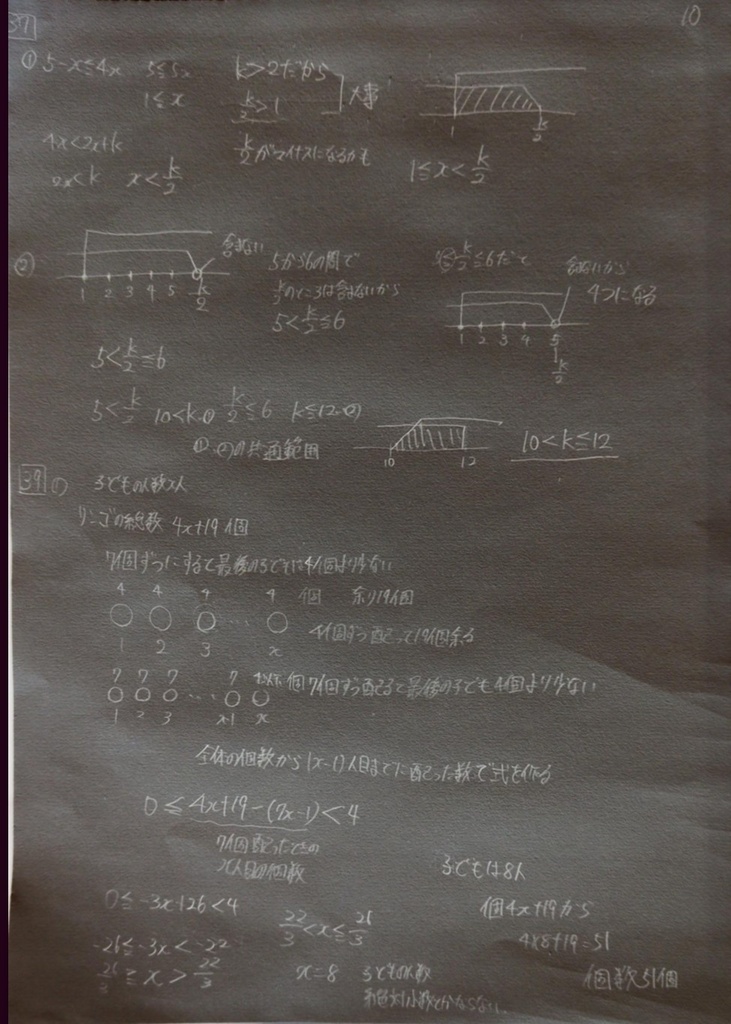 10
37
① 5-x≦4x 5≦5x
1≦x
4x<2x+k
2x<k x<k/2
k>2だから
k/2>1
大事
k/2がマイナスになるかも
1 k/2
1≦x<k/2
②
含まない
1 2 3 4 5 k/2
5から6の間で
k/2のところは含まないから
5<k/2≦6
k/2≦6だと
含まないから
4つになる
1 2 3 4 5
k/2
5<k/2≦6
5<k/2 10<k.① k/2≦6 k≦12.②
①.②の共通範囲
10 12
10<k≦12
39 ① 子どもの人数x人
リンゴの総数 4x+19個
7個ずつにすると最後の子どもは4個より少ない
4 4 4 4 個 余り19個
○ ○ ○ … ○ 4個ずつ配って19個余る
1 2 3 x
7 7 7 7 個 7個ずつ配ると最後の子ども4個より少ない
○ ○ ○ … ○ ○
1 2 3 x-1 x
全体の個数から(x-1)人目までに配った数で式を作る
0≦4x+19-(7x-1)<4
7個配ったときの
x人目の個数
0≦-3x+26<4
-26≦-3x<-22
26/3≧x>22/3
22/3<x≦26/3
x=8 子どもの人数
絶対小数とかならない.
子どもは8人
個4x+19から
4×8+19=51
個数51個